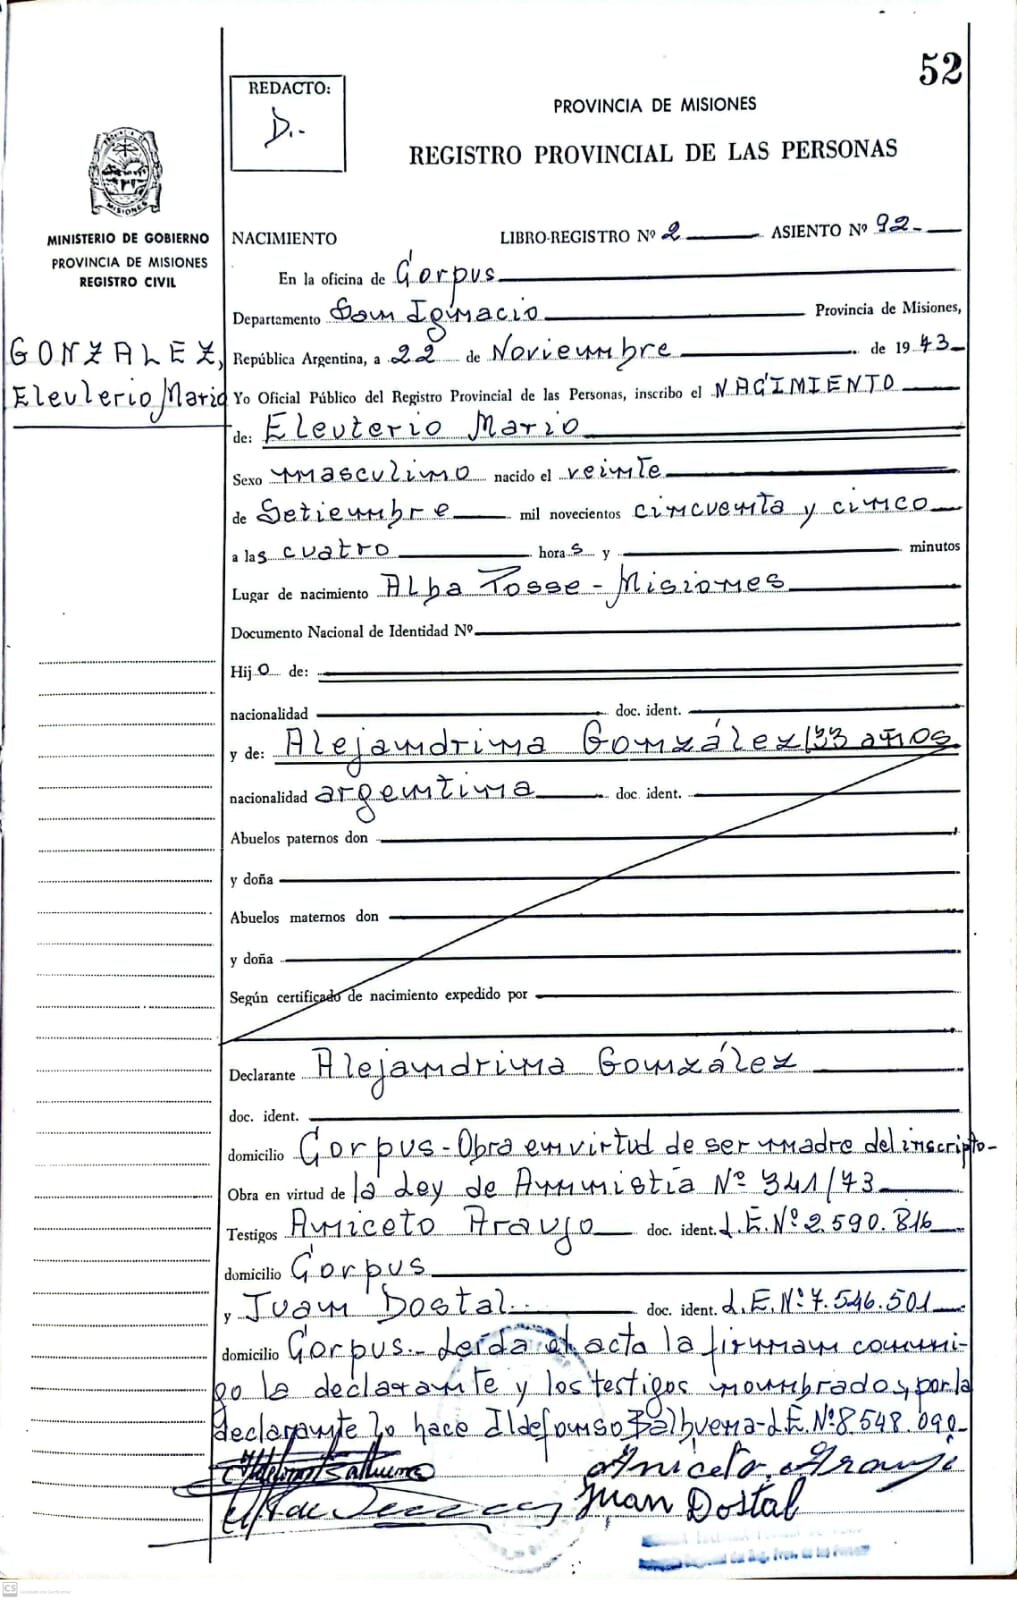 52
REDACTO:
D.-
PROVINCIA DE MISIONES
REGISTRO PROVINCIAL DE LAS PERSONAS
MISIONES
MINISTERIO DE GOBIERNO
PROVINCIA DE MISIONES
REGISTRO CIVIL
GONZALEZ,
Eleuterio Mario
NACIMIENTO LIBRO-REGISTRO Nº 2 ASIENTO Nº 92.-
En la oficina de Corpus
Departamento San Ignacio Provincia de Misiones,
República Argentina, a 22 de Noviembre de 1973
Yo Oficial Público del Registro Provincial de las Personas, inscribo el NACIMIENTO
de: Eleuterio Mario
Sexo masculino nacido el veinte
de Setiembre mil novecientos cincuenta y cinco
a las cuatro horas y minutos
Lugar de nacimiento Alba Posse - Misiones
Documento Nacional de Identidad Nº
Hijo de:
nacionalidad doc. ident.
y de: Alejandrina González/33 años
nacionalidad argentina doc. ident.
Abuelos paternos don
y doña
Abuelos maternos don
y doña
Según certificado de nacimiento expedido por
Declarante Alejandrina González
doc. ident.
domicilio Corpus - Obra en virtud de ser madre del inscripto-
Obra en virtud de la Ley de Amnistía Nº 341/73
Testigos Aniceto Araujo doc. ident. L.E. Nº 2.590.816
domicilio Corpus
y Juan Dostal doc. ident. L.E. Nº 7.546.501
domicilio Corpus.- Leída el acta la firman conmi-
go la declarante y los testigos nombrados, por la
declarante lo hace Ildefonso Balbuena - L.E. Nº 8.548.090-
Ildefonso Balbuena Aniceto Araujo
Juan Dostal
CS